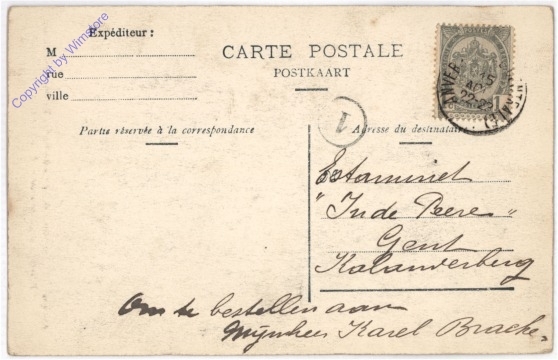 Expéditeur :
M
rue
ville
Copyright by Winstore
CARTE POSTALE
POSTKAART
1
ANVERS
15
Partie réservée à la correspondance
1
Adresse du destinataire :
Estaminet
"In de Beere"
Gent
Kalanderberg
Om te bestellen aan
Mynheer Karel Bracke